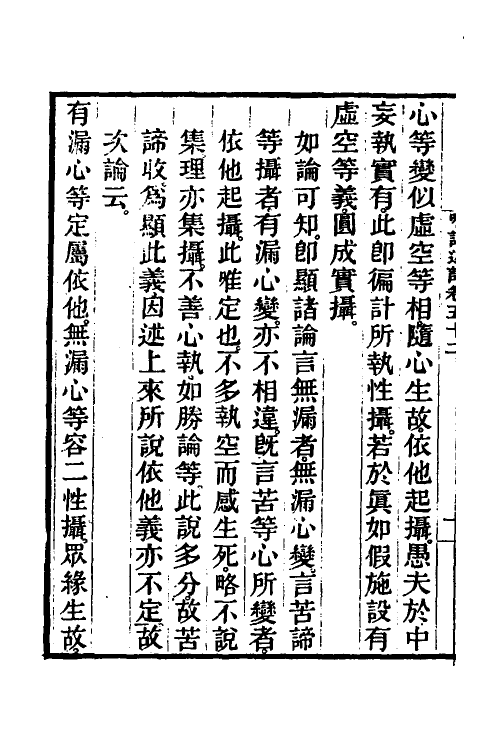 心等變似虛空等相隨心生故依他起攝愚夫於中
妄執實有此卽徧計所執性攝若於眞如假施設有
虛空等義圓成實攝。
如論可知卽顯諸論言無漏者無漏心變言苦諦
等攝者有漏心變亦不相違旣言苦等心所變者。
依他起攝此唯定也不多執空而感生死略不說
集理亦集攝不善心執如勝論等此說多分故苦
諦收爲顯此義因述上來所說依他義亦不定故
次論云。
有漏心等定屬依他無漏心等容二性攝眾緣生故。
卷五十二